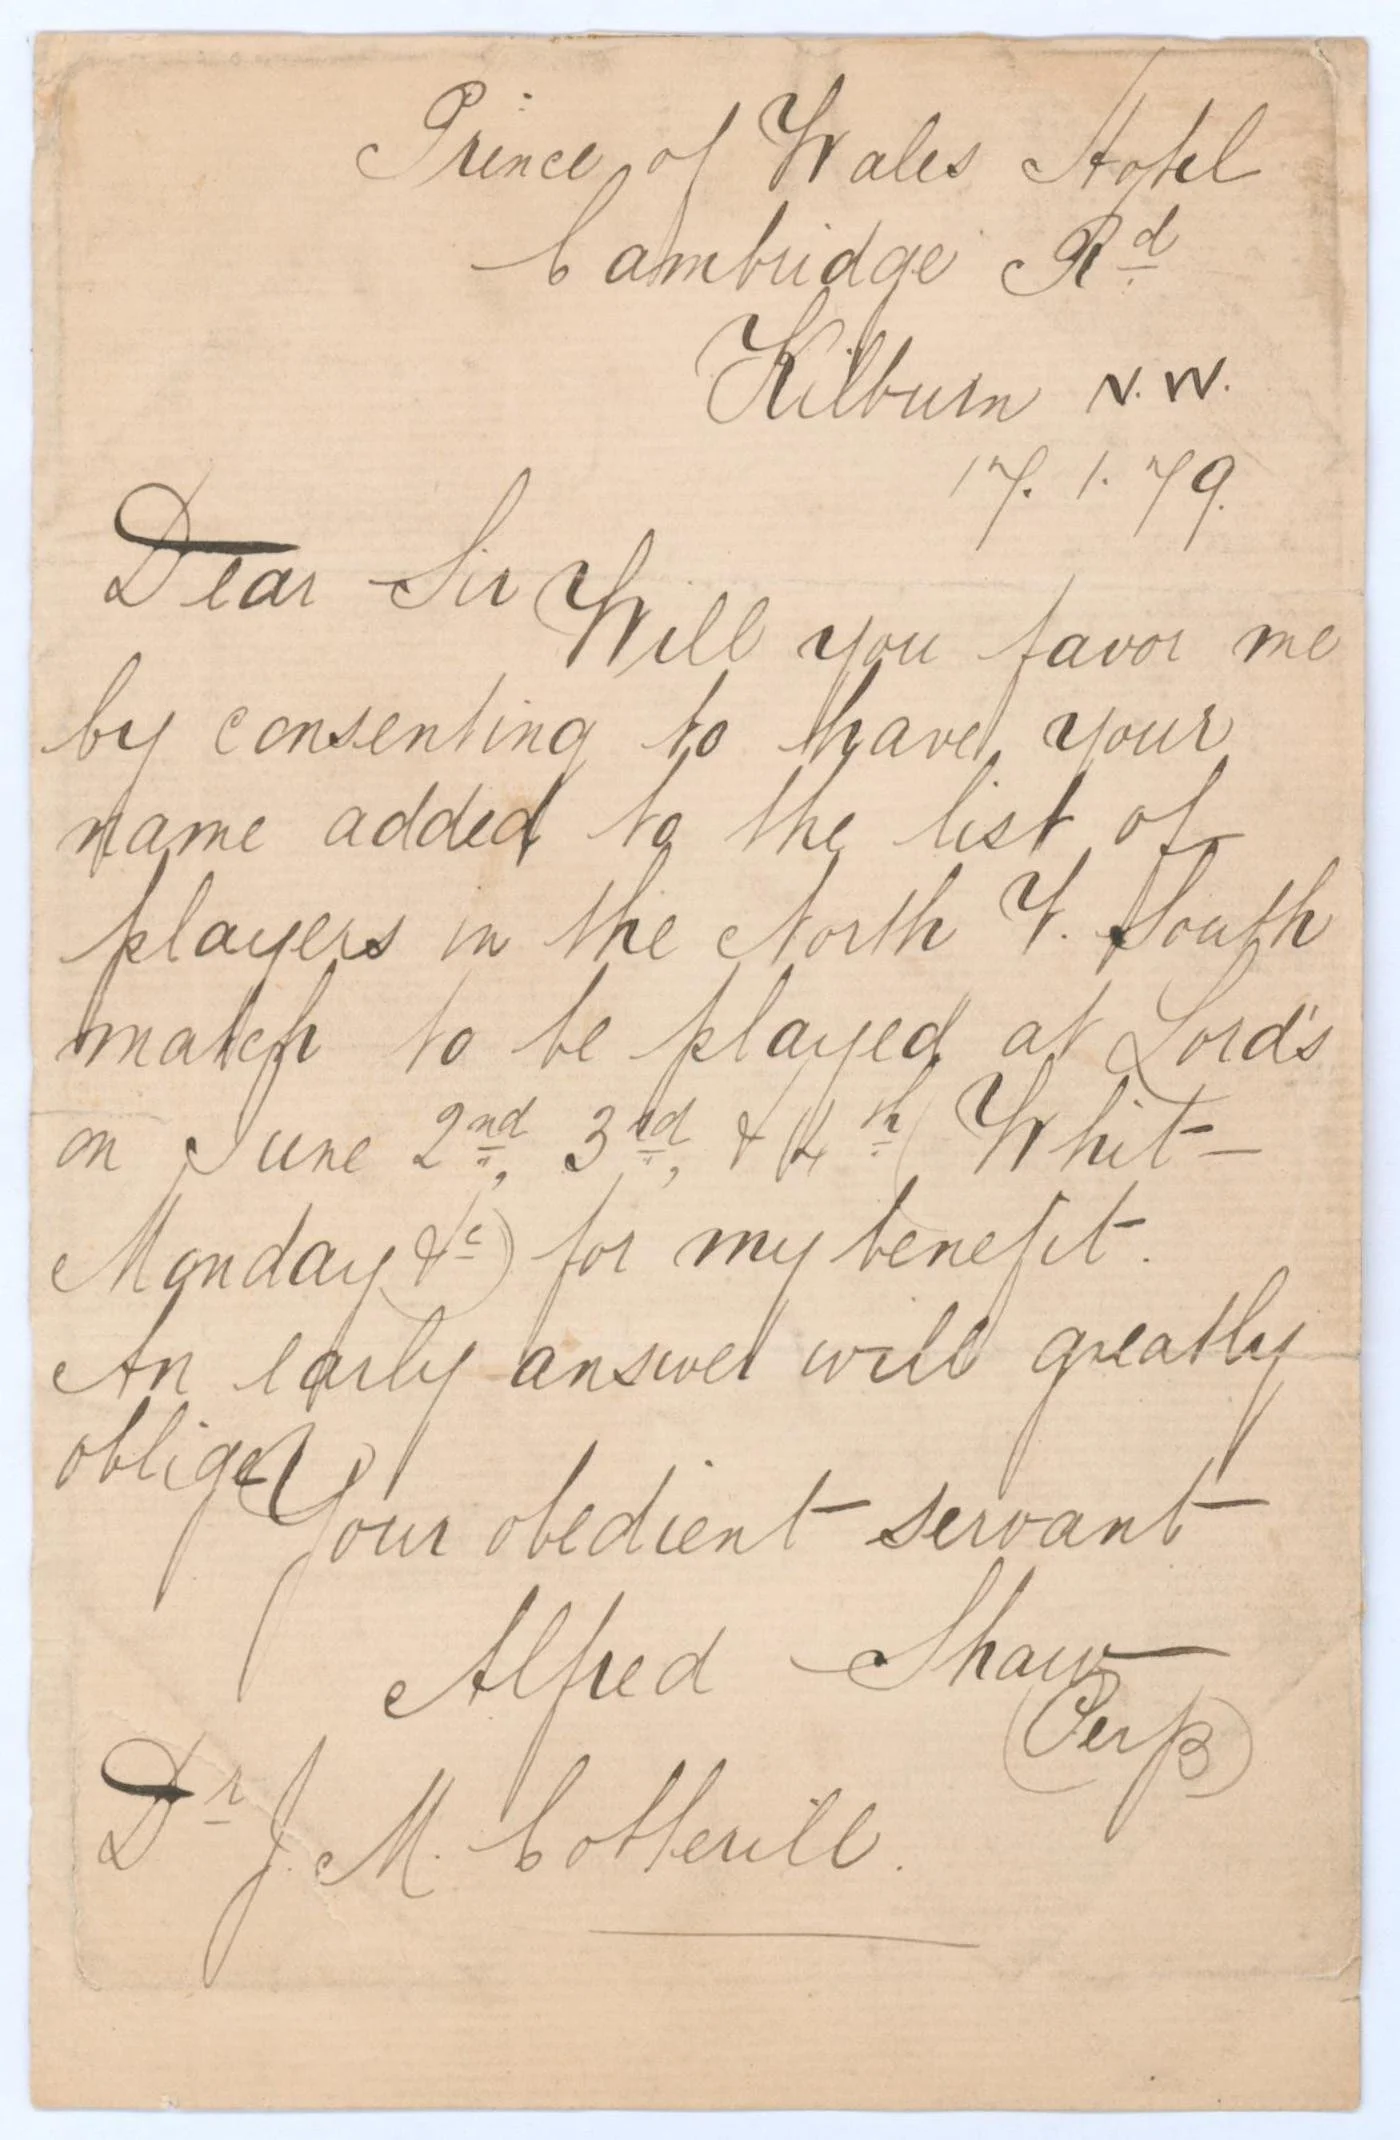 Prince of Wales Hotel
Cambridge Rd
Kilburn N.W.
17. 1. 79.
Dear Sir
Will you favor me
by consenting to have your
name added to the list of
players in the North V. South
match to be played at Lord's
on June 2nd, 3rd, & 4th (Whit-
Monday &c) for my benefit.
An early answer will greatly
oblige
Your obedient servant
Alfred Shaw
(Per B)
Dr J. M. Cotterill.